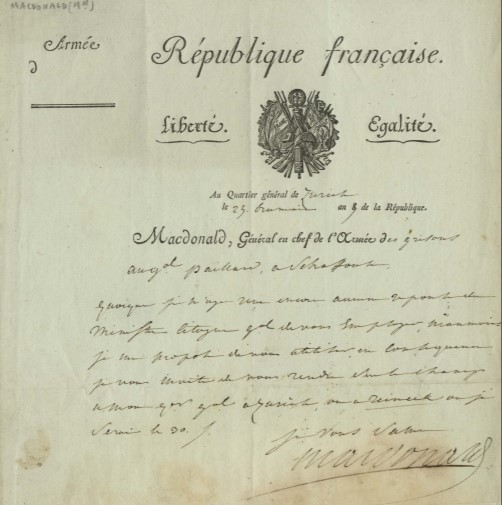 MACDONALD (Mal)
Armée
d
République française.
Liberté. Egalité.
Au Quartier général de Zurich
le 25. brumaire an 9 de la République.
Macdonald, Général en chef de l'Armée des grisons
au gal
quoique je n'aye encore aucune reponse du
Ministre Citoyen gal de vous Employer,
je me propose de vous utiliser, en Consequence
je vous invite de vous rendre le champ
a mon qer gal a Zurich, ou a reineck ou je
Serai le 30.
je vous Salue
Macdonald